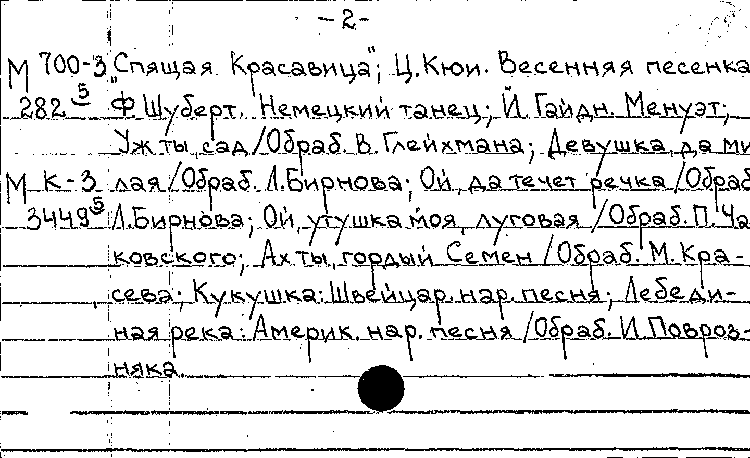 -2-
М 700-3 „Спящая Красавица"; Ц. Кюи. Весенняя песенка
282 5 Ф Шуберт. Немецкий танец; Й. Гайдн. Менуэт;
Уж ты, сад /Обраб. В. Глейхмана; Девушка да ми
М К-3 лая /Обраб. Л. Бирнова; Ой, да течет речка /Обраб
3449 5 Л. Бирнова; Ой, утушка моя, луговая /Обраб. П. Ча
ковского; Ах ты, гордый Семен /Обраб. М. Кра-
сева; Кукушка: Швейцар. нар. песня; Лебеди-
ная река: Америк. нар. песня /Обраб. И. Повроз-
няка.